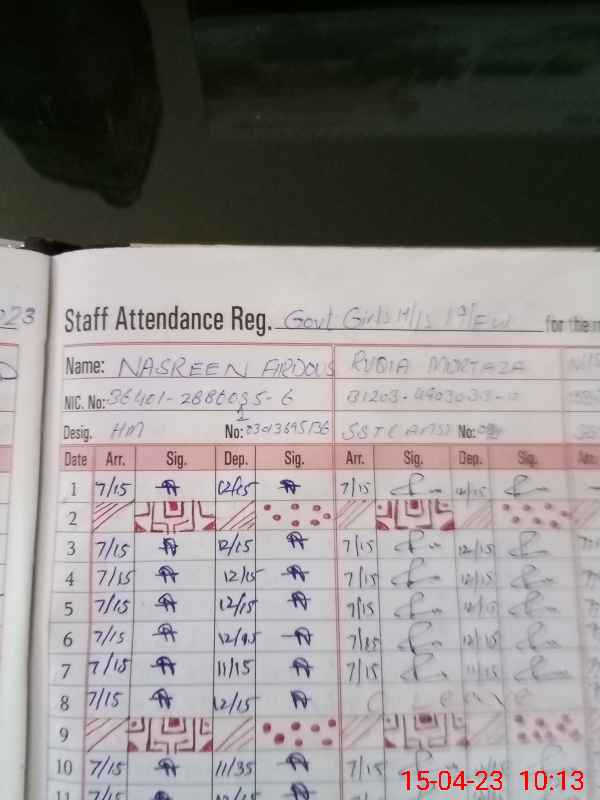 023
Staff Attendance Reg. Govt Girls H/S 19/EW for the
Name: NASREEN FIRDOUS RUQIA MURTAZA
NIC. No: 36401-2886035-6 31203-
Desig. HM No: 03013695136 SST No:
Date Arr. Sig. Dep. Sig. Arr. Sig. Dep. Sig. Arr.
1 7/15 12/15 7/15 12/15
2
3 7/15 12/15 7/15 12/15
4 7/15 12/15 7/15 12/15
5 7/15 12/15 7/15 12/15
6 7/15 12/15 7/15 12/15
7 7/15 11/15 7/15 11/15
8 7/15 12/15 C Leave
9
10 7/15 11/35 7/15
11 7/15
15-04-23 10:13